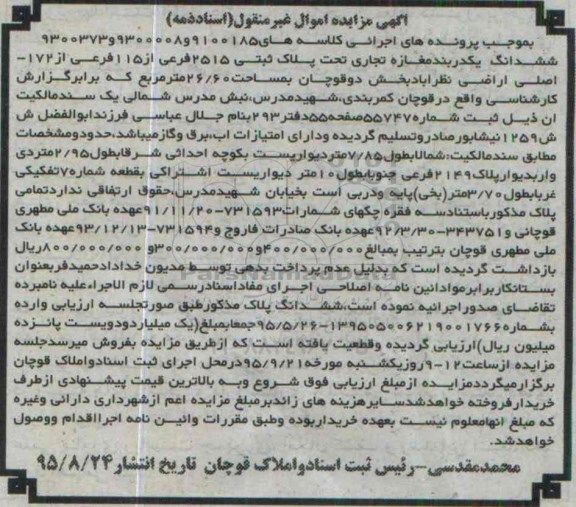 آگهی مزایده اموال غیرمنقول(اسنادذمه)
بموجب پرونده های اجرائی کلاسه های۹۱۰۰۱۸۵و۹۳۰۰۰۰۸و۹۳۰۰۳۷۳
ششدانگ یکدربندمغازه تجاری تحت پلاک ثبتی ۲۵۱۵فرعی از۱۱۵فرعی از۱۷۲-
اصلی اراضی نظرابادبخش دوقوچان بمساحت۲۶/۶۰مترمربع که برابرگزارش
کارشناسی واقع درقوچان کمربندی،شهیدمدرس،نبش مدرس شمالی یک سندمالکیت
ان ذیل ثبت شماره۵۵۷۴۷صفحه۵۵دفتر۲۹۳بنام جلال عباسی فرزندابوالفضل ش
ش۱۲۵۹نیشابورصادروتسلیم گردیده ودارای امتیازات اب،برق وگازمیباشد،حدودومشخصات
مطابق سندمالکیت:شمالابطول۷/۸۵متردیواریست بکوچه احداثی شرقابطول۲/۹۵متردی
واربدیوارپلاک۲۱۴۹فرعی جنوبابطول۱۰متر دیواریست اشتراکی بقطعه شماره۷تفکیکی
غربابطول۳/۷۰متر(بخی)پایه ودربی است بخیابان شهیدمدرس،حقوق ارتفاقی نداردتمامی
پلاک مذکورباستنادسه فقره چکهای شمارات۷۳۱۵۹۳-۹۱/۱۱/۲۰عهده بانک ملی مطهری
قوچانی و۳۴۳۷۵۱-۹۲/۳/۳۰عهده بانک صادرات فاروج و۷۳۱۵۹۴-۹۳/۱۲/۱۳عهده بانک
ملی مطهری قوچان بترتیب بمبالغ۴۰۰/۰۰۰/۰۰۰و۳۰۰/۰۰۰/۰۰۰و ۸۰۰/۰۰۰/۰۰۰ریال
بازداشت گردیده است که بدلیل عدم پرداخت بدهی توسط مدیون خدادادحمیدفربعنوان
بستانکاربرابرموادائین نامه اصلاحی اجرای مفاداسنادرسمی لازم الاجراءعلیه نامبرده
تقاضای صدوراجرائیه نموده است،ششدانگ پلاک مذکورطبق صورتجلسه ارزیابی وارده
بشماره۱۳۹۵۰۵۰۰۶۲۱۹۰۰۱۷۶۶-۹۵/۵/۲۶جمعابمبلغ(یک میلیاردودویست پانزده
میلیون ریال)ارزیابی گردیده وقطعیت یافته است که ازطریق مزایده بفروش میرسدجلسه
مزایده ازساعت۱۲-۹روزیکشنبه مورخه۹۵/۹/۲۱درمحل اجرای ثبت اسنادواملاک قوچان
برگزارمیگرددمزایده ازمبلغ ارزیابی فوق شروع وبه بالاترین قیمت پیشنهادی ازطرف
خریدارفروخته خواهدشدسایرهزینه های زائدبرمبلغ مزایده اعم ازشهرداری دارائی وغیره
که مبلغ انهامعلوم نیست بعهده خریداربوده وطبق مقررات وائین نامه اجرااقدام ووصول
خواهدشد.
محمدمقدسی-رئیس ثبت اسنادواملاک قوچان تاریخ انتشار۹۵/۸/۲۴